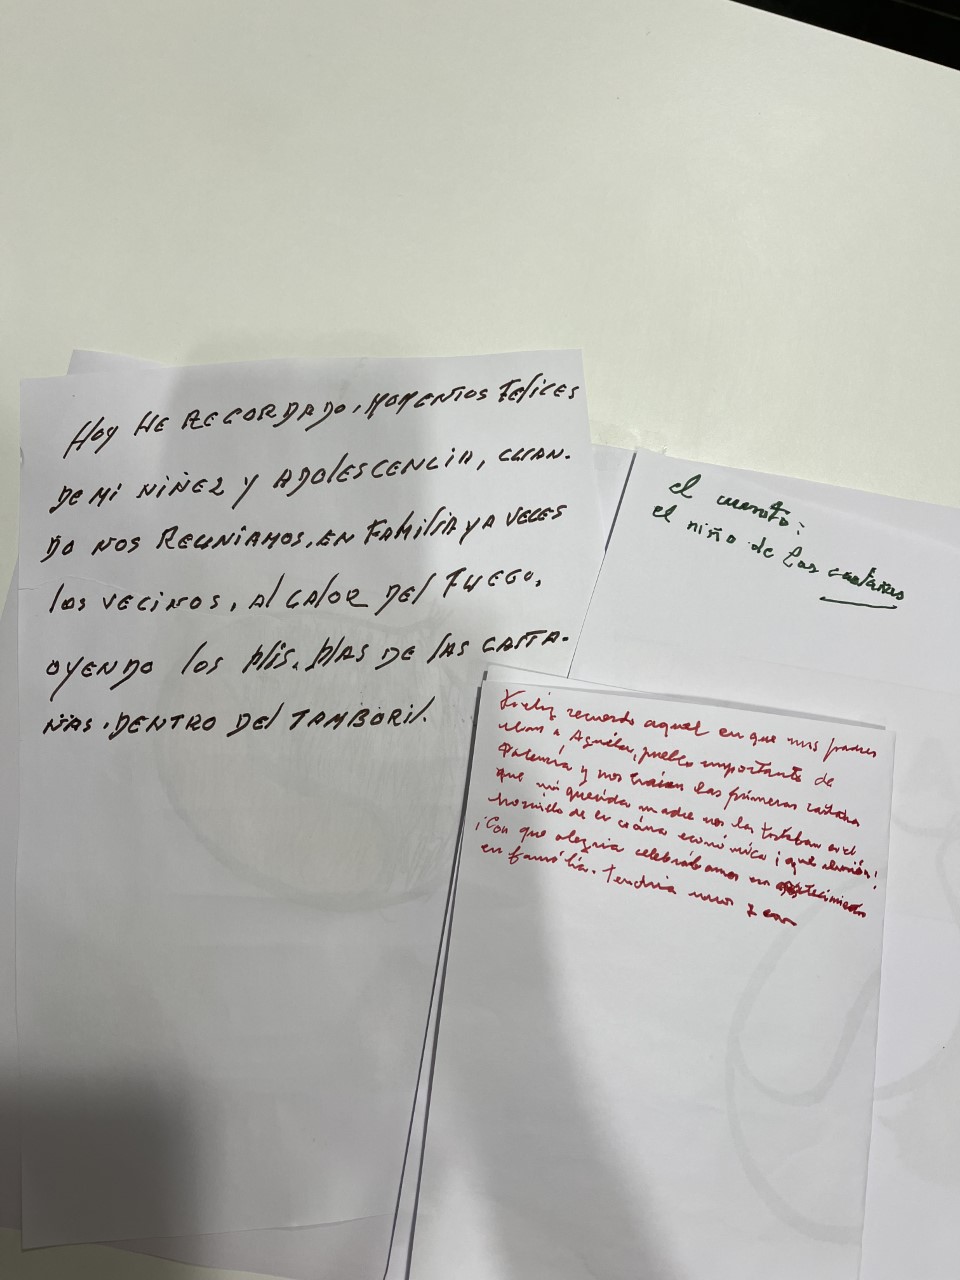 HOY HE RECORDADO, MOMENTOS FELICES
DE MI NIÑEZ Y ADOLESCENCIA, CUAN-
DO NOS REUNÍAMOS, EN FAMILIA Y A VECES
LOS VECINOS, AL CALOR DEL FUEGO,
OYENDO LOS PLIS, PLAS DE LAS CASTA-
ÑAS. DENTRO DEL TAMBORIL.
el cuento:
el niño de las castañas
Feliz recuerdo aquel en que mis padres
iban a Aguilar, pueblo importante de
Palencia y nos traían las primeras castañas
que mi querida madre nos las tostaban en el
hornillo de la cocina económica ¡qué!
¡Con que alegría celebrábamos en
en família. Tendría unos 7